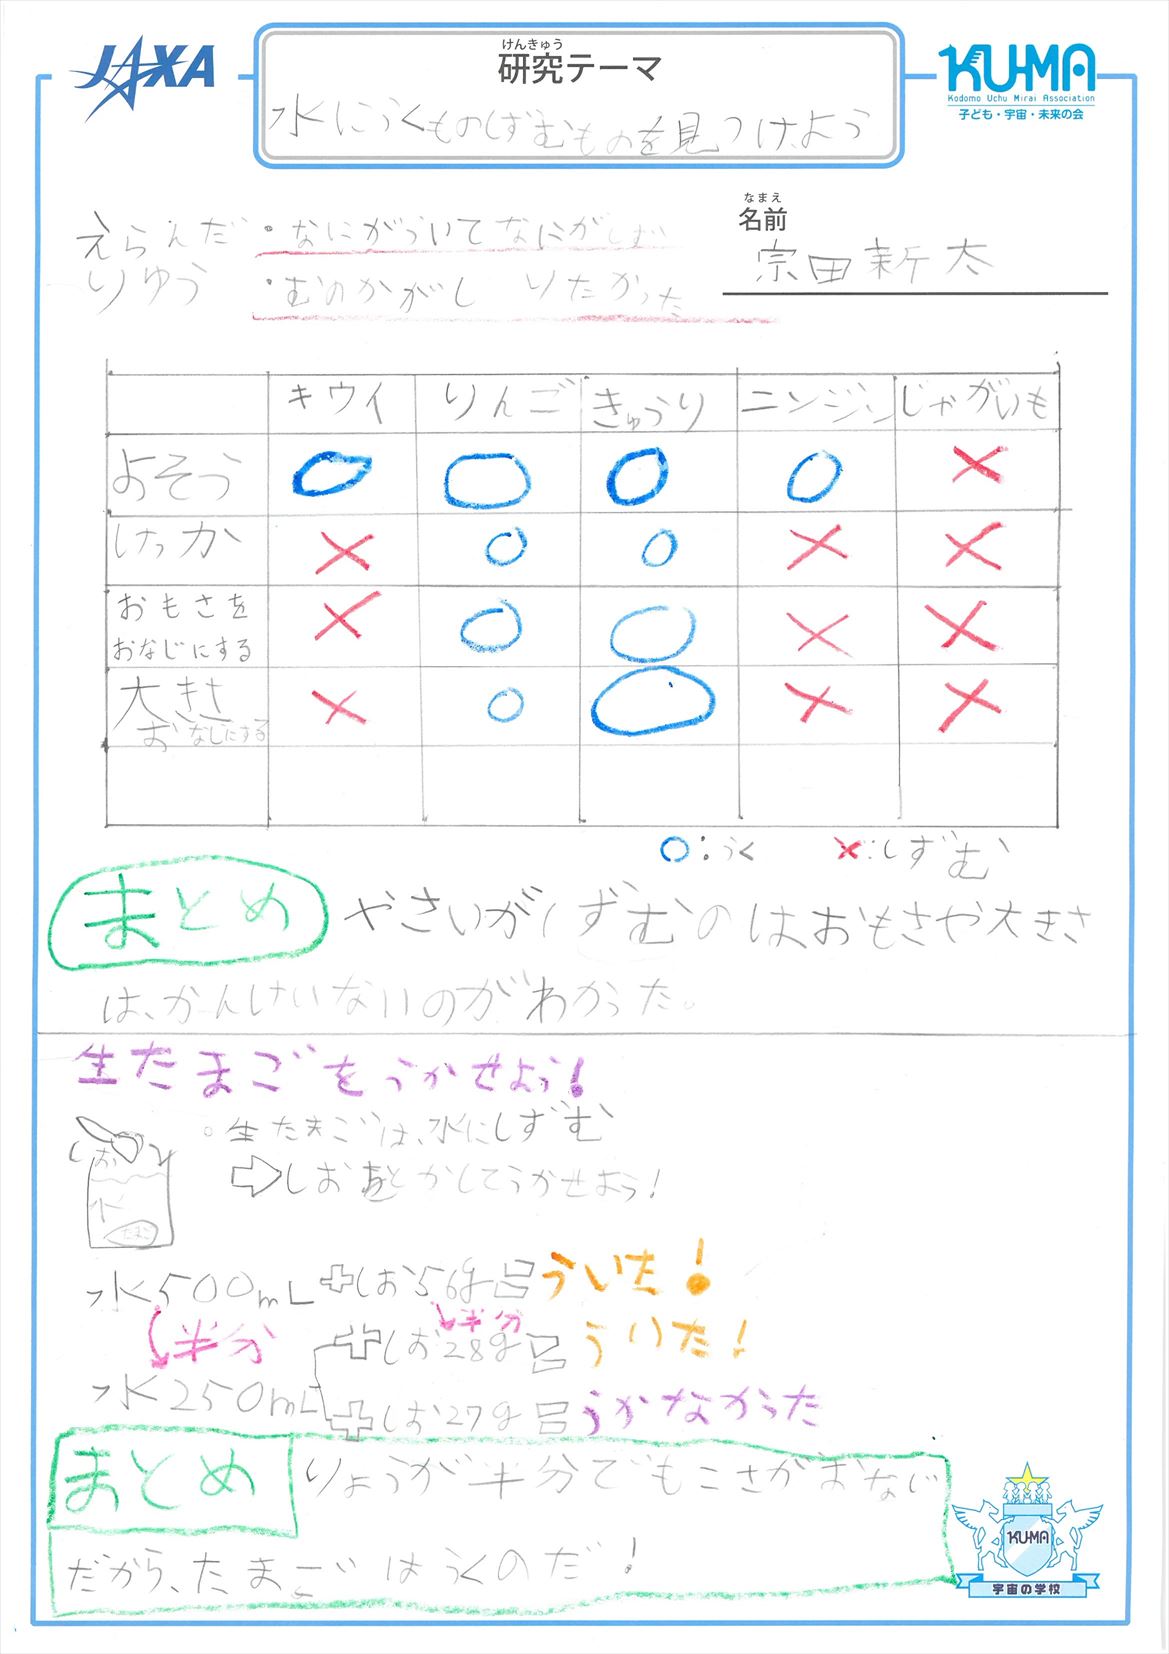 JAXA
けんきゅう
研究テーマ
KU-MA
Kodomo Uchu Mirai Association
子ども・宇宙・未来の会
水にうくものしずむものを見つけよう
なまえ
名前
宗田新太
えらんだ
りゆう
・なにがういてなにがしず
・むのかがしりたかった
キウイ りんご きゅうり ニンジン じゃがいも
よそう ○ ○ ○ ○ ×
けっか × ○ ○ × ×
おもさを
おなじにする × ○ ○ × ×
大きさ
おなじにする × ○ ○ × ×
○:うく ×:しずむ
まとめ やさいがしずむのはおもさや大きさ
は、かんけいないのがわかった。
生たまごをうかせよう!
。生たまごは、水にしずむ
⇨しおをとかしてうかせよう!
お
水
たまご
水500mL+しお56g=ういた!
半分 半分
+しお28g=ういた!
水250mL
+しお27g=うかなかった
まとめ りょうが半分でもこさがおなじ
だから、たまごはうくのだ!
KU-MA
宇宙の学校